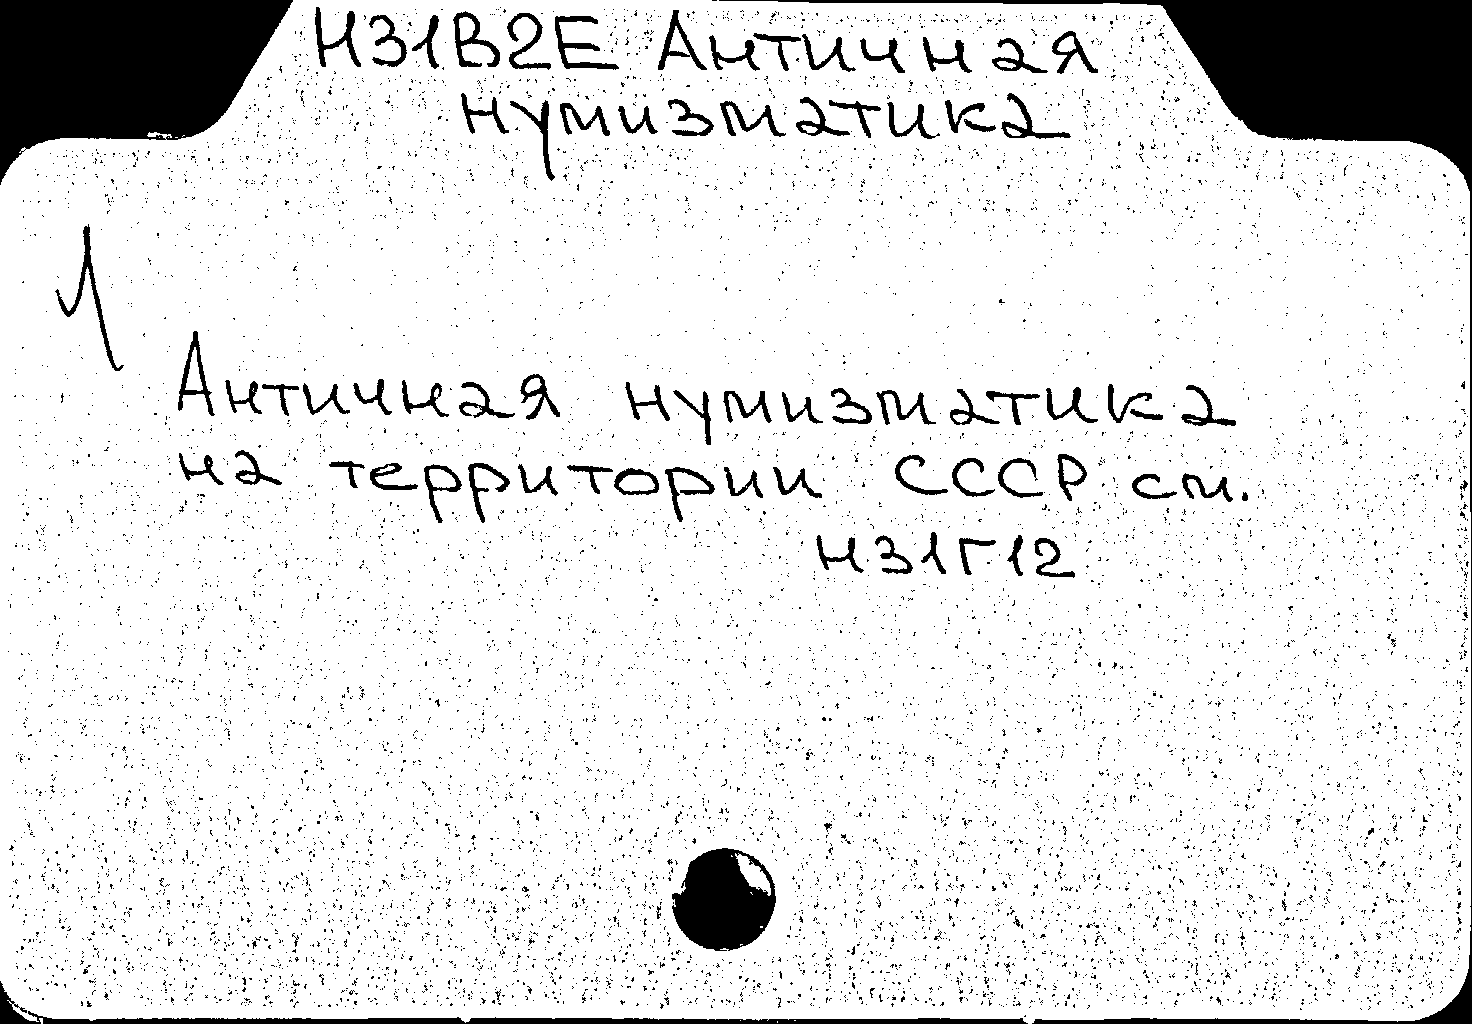 Н31В2Е Античная
нумизматика
Античная нумизматика
на территории СССР см.
Н31Г12